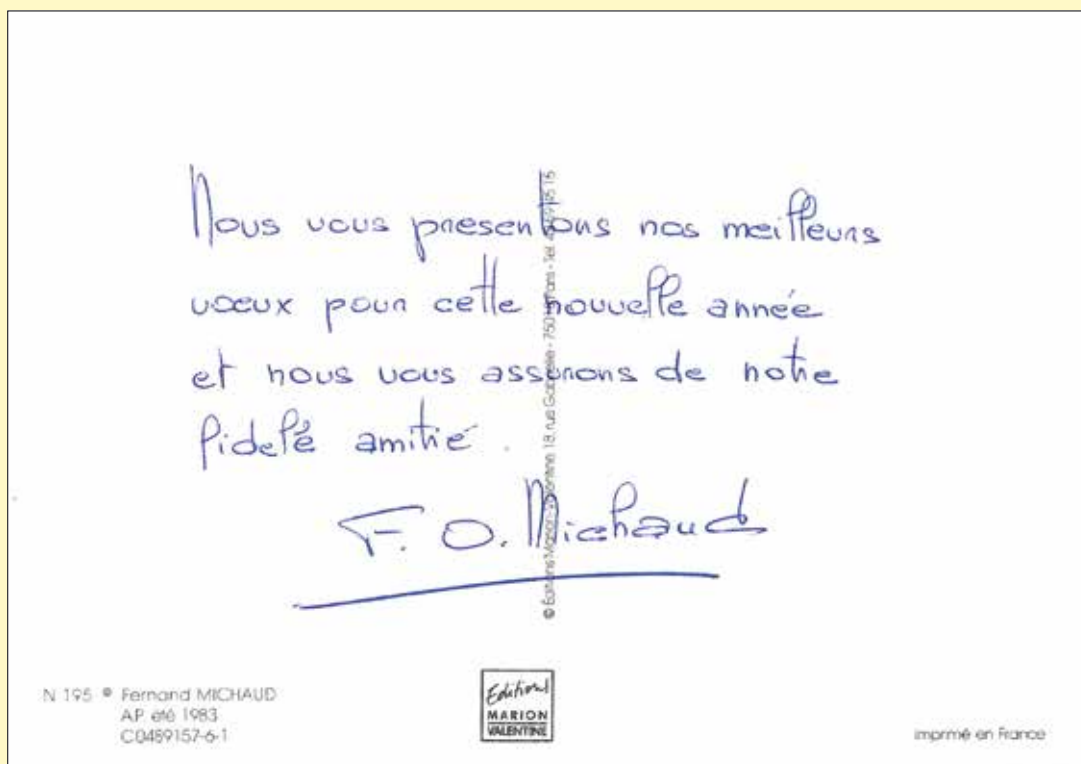 Nous vous presentons nos meilleurs
vœux pour cette nouvelle année
et nous vous assurons de notre
fidelé amitié.
F. O. Michaud
© Editions Marion Valentine 18, rue Gabrielle - Paris - Tel
N 195 © Fernand MICHAUD
AP été 1983
C0489157-6-1
Editions
MARION
VALENTINE
imprimé en France